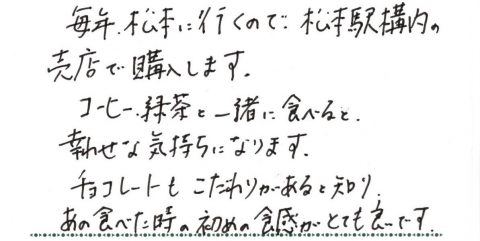 毎年、松本に行くので、松本駅構内の
売店で購入します。
コーヒー、緑茶と一緒に食べると、
幸わせな気持ちになります。
チョコレートもこだわりがあると知り、
あの食べた時の初めの食感がとても良いです。